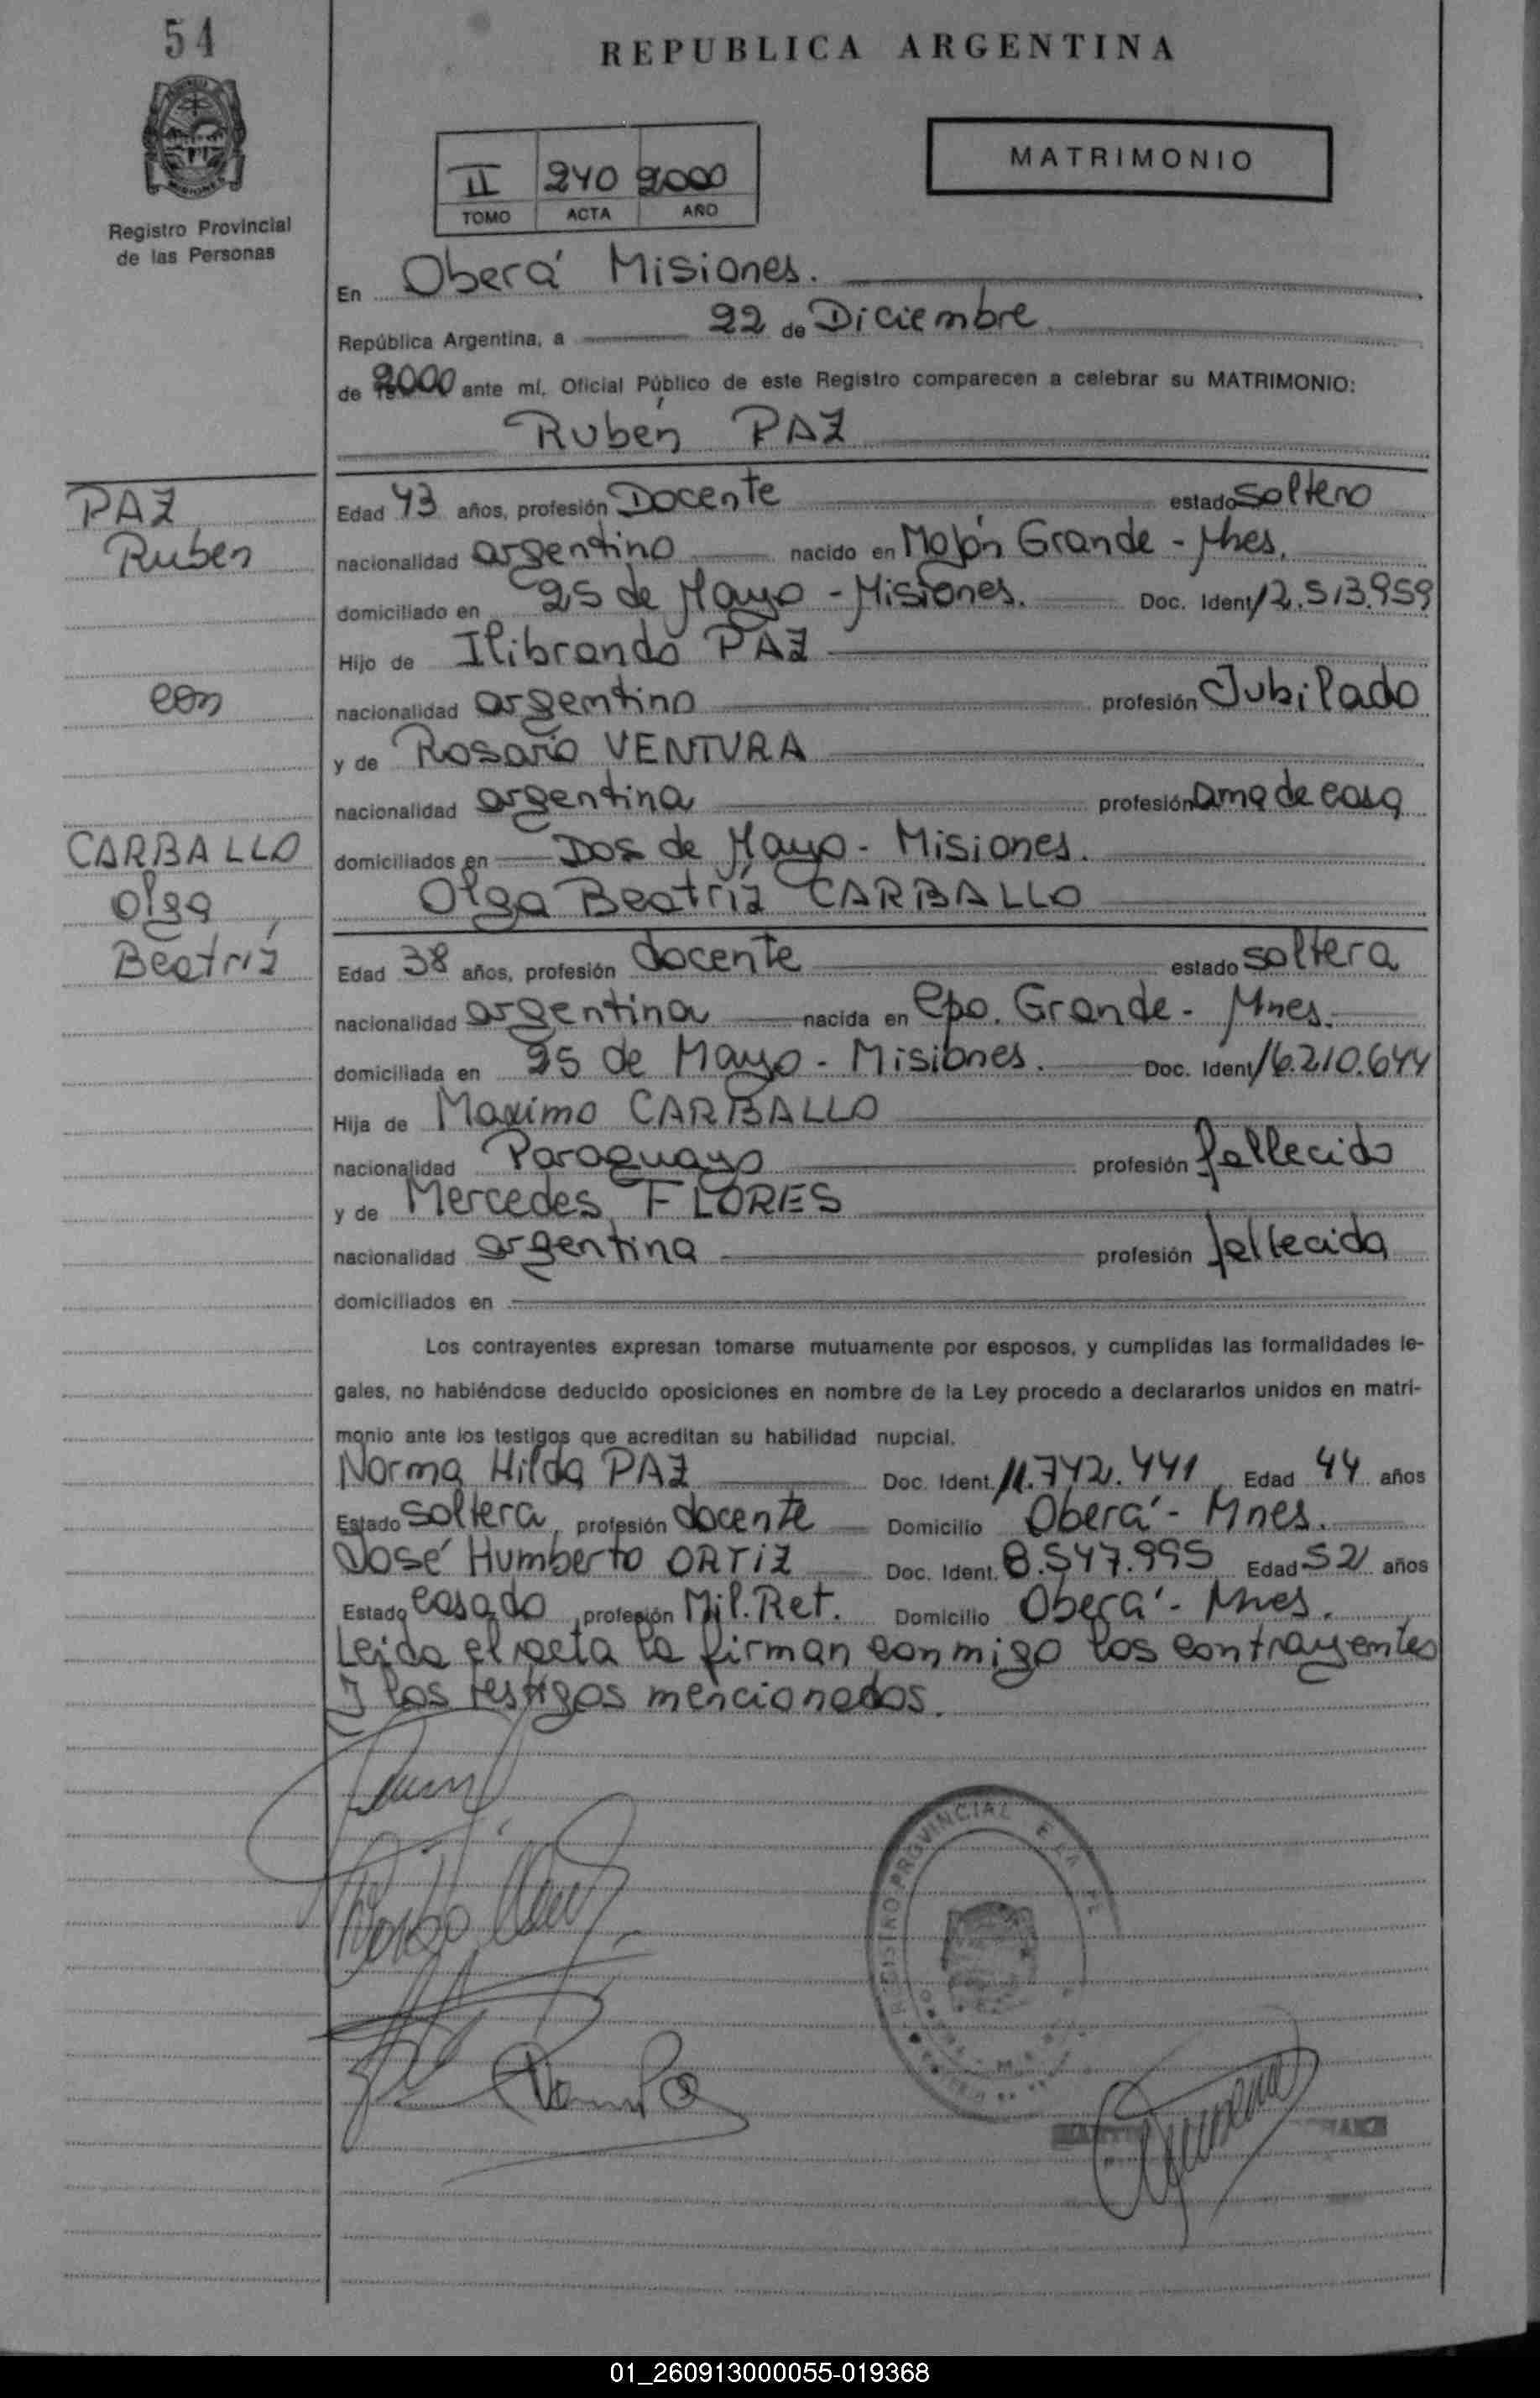 54
REPUBLICA ARGENTINA
MATRIMONIO
II 240 2000
TOMO ACTA AÑO
Registro Provincial
de las Personas
En Oberá Misiones.
República Argentina, a 22 de Diciembre
de 2000 ante mí, Oficial Público de este Registro comparecen a celebrar su MATRIMONIO:
Rubén PAZ
PAZ
Ruben
con
CARBALLO
Olga
Beatríz
Edad 43 años, profesión Docente estado soltero
nacionalidad argentino nacido en Mojón Grande - Mnes.
domiciliado en 25 de Mayo - Misiones. Doc. Ident. 12.513.959
Hijo de Ilibrando PAZ
nacionalidad argentino profesión Jubilado
y de Rosario VENTURA
nacionalidad argentina profesión ama de casa
domiciliados en Dos de Mayo - Misiones.
Olga Beatríz CARBALLO
Edad 38 años, profesión docente estado soltera
nacionalidad argentina nacida en Cpo. Grande - Mnes.
domiciliada en 25 de Mayo - Misiones. Doc. Ident. 16.210.644
Hija de Maximo CARBALLO
nacionalidad Paraguayo profesión fallecido
y de Mercedes FLORES
nacionalidad argentina profesión fallecida
domiciliados en
Los contrayentes expresan tomarse mutuamente por esposos, y cumplidas las formalidades le-
gales, no habiéndose deducido oposiciones en nombre de la Ley procedo a declararlos unidos en matri-
monio ante los testigos que acreditan su habilidad nupcial.
Norma Hilda PAZ Doc. Ident. 11.742.441 Edad 44 años
Estado soltera, profesión docente Domicilio Oberá - Mnes.
José Humberto ORTIZ Doc. Ident. 8.547.995 Edad 52 años
Estado casado, profesión Mil. Ret. Domicilio Oberá - Mnes.
Leida el acta la firman conmigo los contrayentes
y los testigos mencionados.
REGISTRO PROVINCIAL
01_260913000055-019368